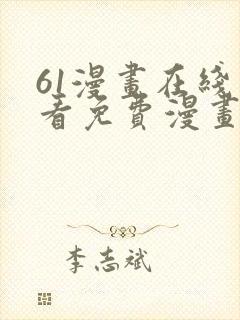 61漫畫在綫
看免費漫畫
李志斌